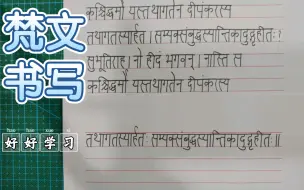 कश्चिद्धर्मो यस्तथागतेन दीपंकरस्य
梵文
तथागतस्यार्हतः सम्यक्संबुद्धस्यान्तिकादुद्गृहीतः?
书写
सुभूतिराह। नो हीदं भगवन्। नास्ति स
कश्चिद्धर्मो यस्तथागतेन दीपंकरस्य
好好学习
तथागतस्यार्हतः सम्यक्संबुद्धस्यान्तिकादुद्गृहीतः॥